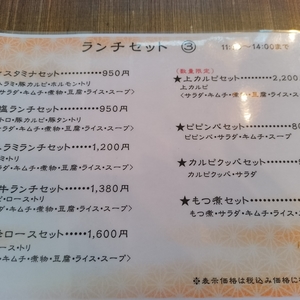 ランチセット ③
11: 〜14:00まで
スタミナセット………950円
ラミ・豚カルビ・ホルモン・トリ
ラダ・キムチ・煮物・豆腐・ライス・スープ>
塩ランチセット………950円
トロ・豚カルビ・豚タン・トリ
サラダ・キムチ・煮物・豆腐・ライス・スープ>
ラミランチセット……1,200円
ミ・トリ
ダ・キムチ・煮物・豆腐・ライス・スープ>
牛ランチセット……1,380円
ビ・ロース・トリ
・キムチ・煮物・豆腐・ライス・スープ>
ロースセット……1,600円
ロース・トリ
・キムチ・煮物・豆腐・ライス・スープ>
(数量限定)
★上カルビセット………2,200
上カルビ
<サラダ・キムチ・煮物・豆腐・ライス・ス
★ビビンバセット………8
ビビンバ・サラダ・キムチ・スープ
★カルビクッパセット……
カルビクッパ・サラダ
★もつ煮セット………
もつ煮・サラダ・キムチ・ライス・
※表示価格は税込み価格に